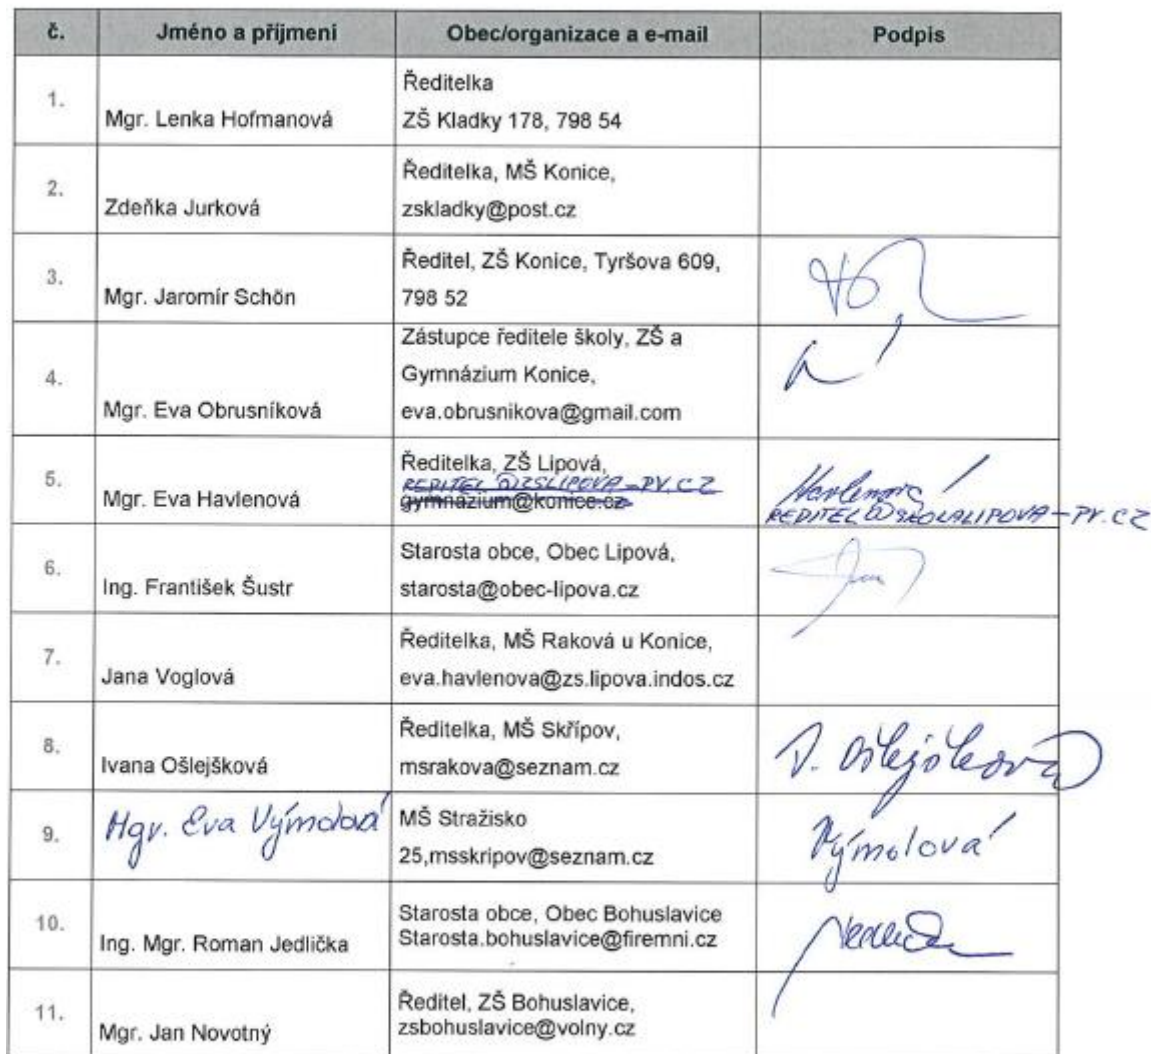 č. Jméno a příjmení Obec/organizace a e-mail Podpis
1. Mgr. Lenka Hofmanová Ředitelka
ZŠ Kladky 178, 798 54
2. Zdeňka Jurková Ředitelka, MŠ Konice,
zskladky@post.cz
3. Mgr. Jaromír Schön Ředitel, ZŠ Konice, Tyršova 609,
798 52
4. Mgr. Eva Obrusníková Zástupce ředitele školy, ZŠ a
Gymnázium Konice,
eva.obrusnikova@gmail.com
5. Mgr. Eva Havlenová Ředitelka, ZŠ Lipová,
REDITEL@ZSLIPOVA-PV.CZ
gymnázium@konice.cz
Havlenová
REDITEL@SKOLALIPOVA-PV.CZ
6. Ing. František Šustr Starosta obce, Obec Lipová,
starosta@obec-lipova.cz
7. Jana Voglová Ředitelka, MŠ Raková u Konice,
eva.havlenova@zs.lipova.indos.cz
8. Ivana Ošlejšková Ředitelka, MŠ Skřípov,
msrakova@seznam.cz
I. Ošlejšková
9. Mgr. Eva Výmolová MŠ Stražisko
25,msskripov@seznam.cz
Výmolová
10. Ing. Mgr. Roman Jedlička Starosta obce, Obec Bohuslavice
Starosta.bohuslavice@firemni.cz
11. Mgr. Jan Novotný Ředitel, ZŠ Bohuslavice,
zsbohuslavice@volny.cz